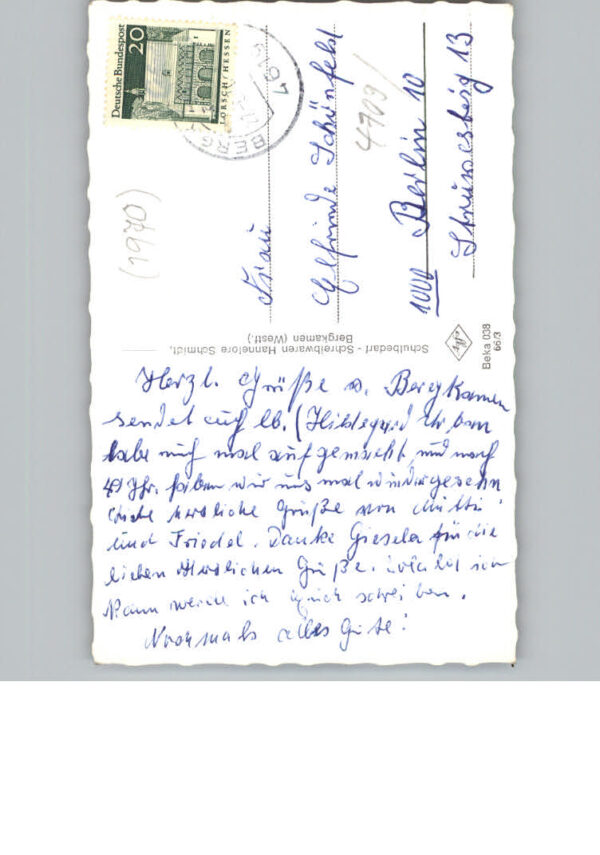 Deutsche Bundespost
20
LORSCH/HESSEN
BERG
(1970)
Frau
Elfriede Schönfeld
4703/
1000 Berlin 10
13
Schulbedarf - Schreibwaren Hannelore Schmidt,
Bergkamen (Westf.)
Beka 038
66/3
Herzl. Grüße v. Bergkamen
sendet euch lb. (Hildegard
habe mich mal aufgemacht und nach
49 Jhr. haben wir uns mal wiedergesehn
herzliche Grüße von Mutti
und Friedel. Danke Giesela für die
lieben herzlichen Grüße. ich
Kann werde ich Euch schreiben.
Nochmals alles Gute!